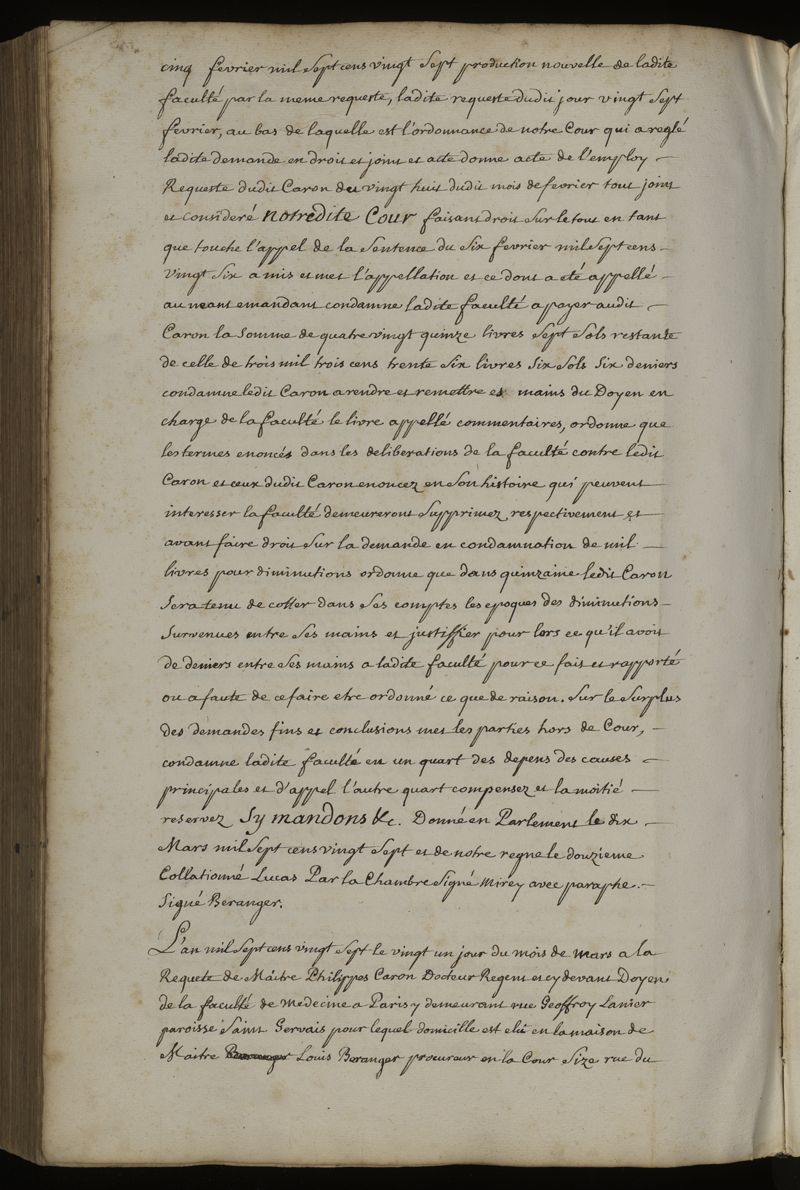 cinq fevrier mil Sept cens vingt Sept production nouvelle de ladite
faculté par la meme requeste, ladite requeste dudit jour vingt Sept
fevrier, au bas de laquelle est l'ordonnance de notre Cour qui a reglé
ladite demande en droit et joint et acte donne acte de l'employ —
Requeste dudit Caron du vingt huit dudit mois de fevrier tout joint
et consideré notredite Cour faisant droit Sur le tout en tant
que touche l'appel de la Sentence du Six fevrier mil Sept cens —
Vingt Six a mis et met l'appellation et ce dont a été appellé —
au neant emandant condamne ladite faculté a payer audit —
Caron la Somme de quatre vingt quinze livres Sept Sols restante
de celle de trois mil trois cens trente Six livres Six Sols Six deniers
condamne ledit Caron a rendre et remettre es mains du Doyen en
charge de la faculté le livre appellé commentaires, ordonne que
les termes enoncés dans les deliberations de la faculté contre ledit
Caron et ceux dudit Caron enoncez en Son histoire qui peuvent —
interesser la faculté demeureront Supprimez respectivement et —
avant faire droit Sur la demande en condamnation de mil —
livres pour diminutions ordonne que dans quinzaine ledit Caron
Sera tenu de cotter dans Ses comptes les epoques des diminutions —
Survenues entre Ses mains et justiffier pour lors ce qu'il avoit
de deniers entre Ses mains a ladite faculté pour ce fait et rapporté
ou a faute de ce faire etre ordonné ce que de raison. Sur le Surplus
des demandes fins et conclusions met les parties hors de Cour, —
condamne ladite faculté en un quart des depens des causes —
principales et d'appel l'autre quart compensez et la moitié —
reservez Sy mandons &c. Donné en Parlement le dix —
Mars mil Sept cens vingt Sept et de notre regne le douzieme
Collationné Lucas Par la Chambre Signé Mirey avec paraphe. —
Signé Beranger.
L'an mil Sept cens vingt Sept le vingt un jour du mois de Mars a la
Requete de Maitre Philippes Caron Docteur Regent et cy devant Doyen
de la faculté de Medecine a Paris y demeurant rue Geoffroy Lanier
paroisse Saint Gervais pour lequel domicille est elû en la maison de
Maitre Beranger Louis Beranger procureur en la Cour Size rue du